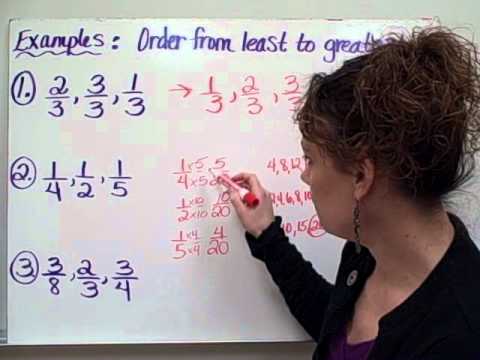 Examples: Order from least to
1. 2/3, 3/3, 1/3 → 1/3, 2/3, 3/3
2. 1/4, 1/2, 1/5
1×5/4×5 5/20
4, 8, 12
1×10/2×10 10/20
4, 6, 8, 10
1×4/5×4 4/20
10, 15, 20
3. 3/8, 2/3, 3/4